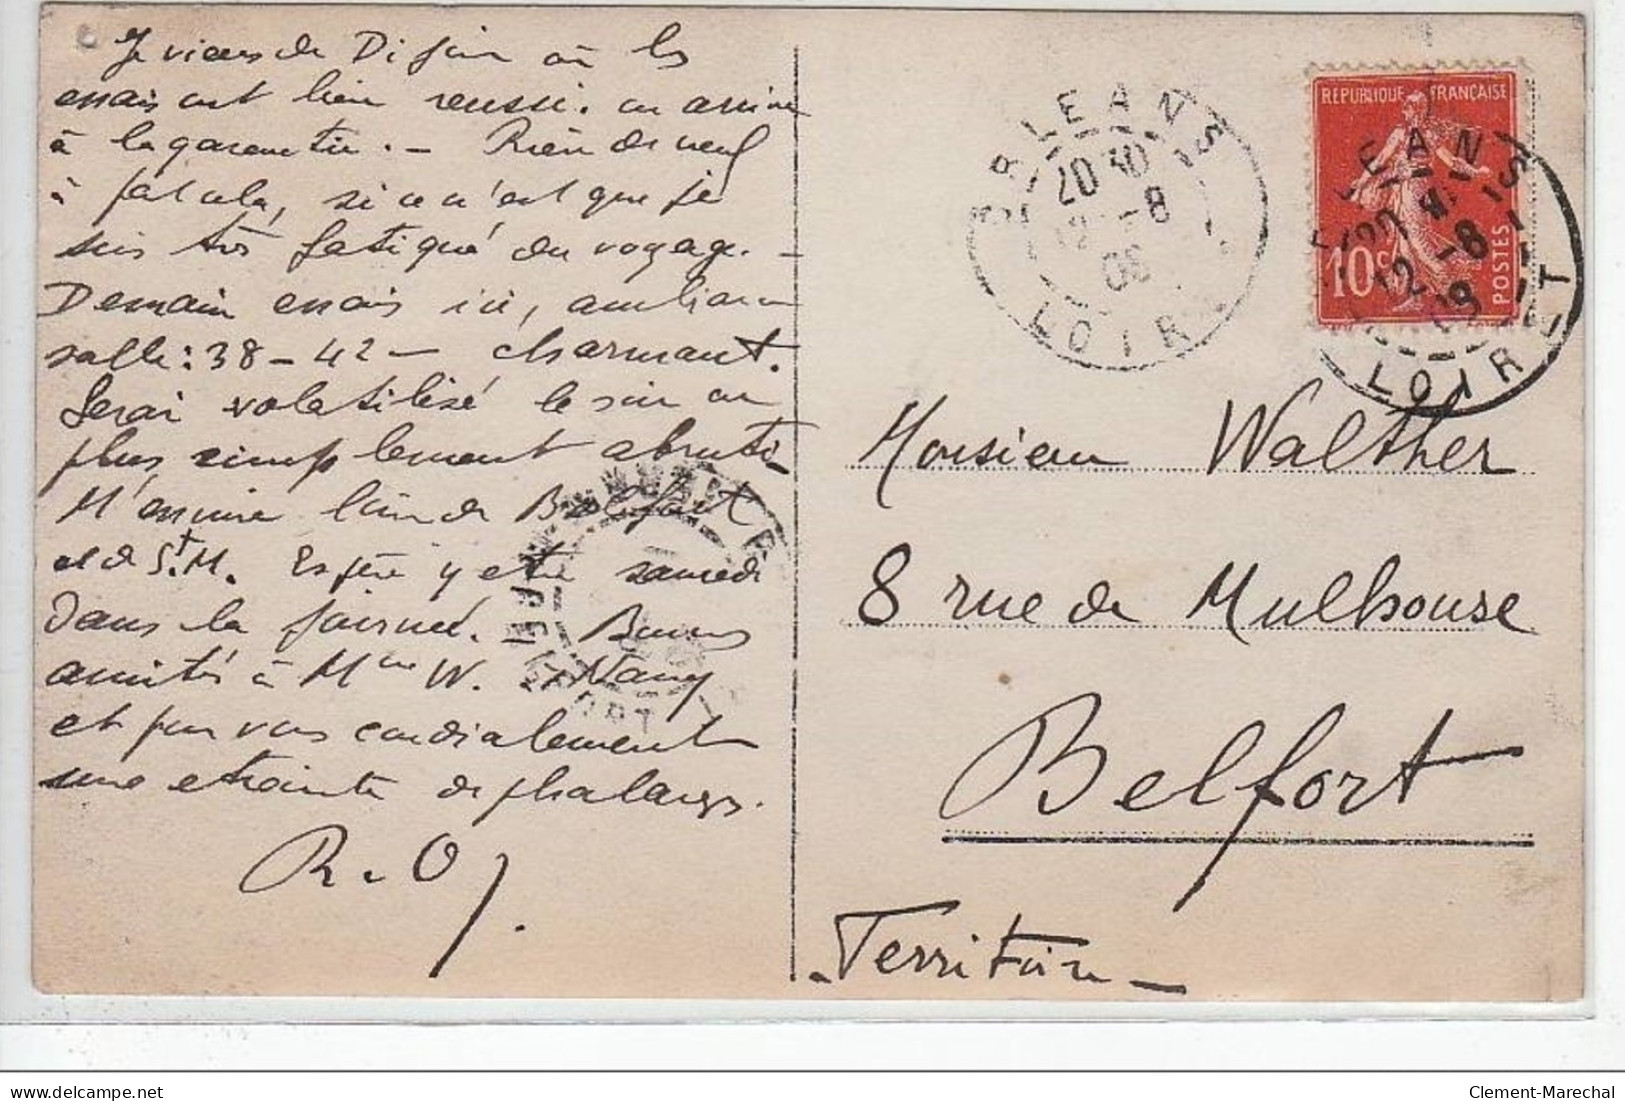 Je viens de Dijon où les
essais ont bien reussi. on arrive
à la garantie. - Rien de neuf
à part cela, si ce n'est que je
suis très fatigué du voyage. -
Demain essais ici,
salle : 38 - 42 - charmant.
Serai volatilisé le soir ou
plus simplement abruti -
M'ennuie loin de Belfort
et de St. M. Espère y être samedi
dans la journée. Bonnes
amitiés à Mme W. & Nany
et pour vous cordialement
une etreinte de phalanges.
R. O.
ORLEANS
20 30
12 -8
08
LOIRET
REPUBLIQUE FRANÇAISE
10c
POSTES
ORLEANS
12 -8
LOIRET
Monsieur Walther
8 rue de Mulhouse
Belfort
- Territoire -
delcampe.net
Clement-Marechal